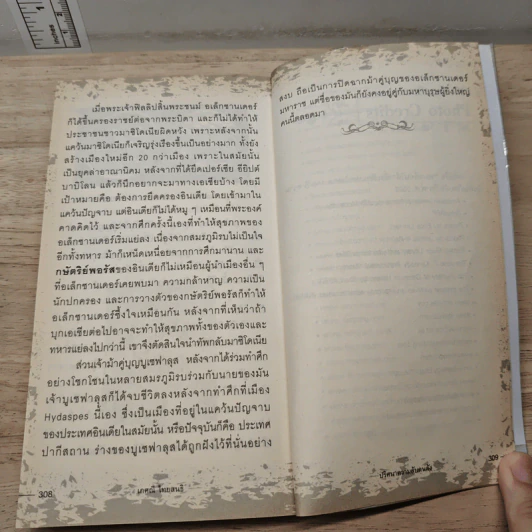 INCHES
1
เมื่อพระเจ้าฟิลลิปสิ้นพระชนม์ อเล็กซานเดอร์
ก็ได้ขึ้นครองราชย์ต่อจากพระบิดา และก็ไม่ได้ทำให้
ประชาชนชาวมาซิโดเนียผิดหวัง เพราะหลังจากนั้น
แคว้นมาซิโดเนียก็เจริญรุ่งเรืองขึ้นเป็นอย่างมาก ทั้งยัง
สร้างเมืองใหม่อีก 20 กว่าเมือง เพราะในสมัยนั้น
เป็นยุคล่าอาณานิคม หลังจากที่ได้ยึดเปอร์เซีย อียิปต์
บาบิโลน แล้วก็นึกอยากจะมาทางเอเชียบ้าง โดยมี
เป้าหมายคือ ต้องการยึดครองอินเดีย โดยเข้ามาใน
แคว้นปัญจาบ แต่อินเดียก็ไม่ได้หมู ๆ เหมือนที่พระองค์
คาดคิดไว้ และจากศึกครั้งนี้เองที่ทำให้สุขภาพของ
อเล็กซานเดอร์เริ่มแย่ลง เนื่องจากสมรภูมิรบไม่เป็นใจ
อีกทั้งทหาร ม้าก็เหน็ดเหนื่อยจากการศึกมานาน และ
กษัตริย์พอรัสของอินเดียก็ไม่เหมือนผู้นำเมืองอื่น ๆ
ที่อเล็กซานเดอร์เคยพบมา ความกล้าหาญ ความเป็น
นักปกครอง และการวางตัวของกษัตริย์พอรัสก็ทำให้
อเล็กซานเดอร์ซึ้งใจเหมือนกัน หลังจากที่เห็นว่าถ้า
บุกเอเชียต่อไปอาจจะทำให้สุขภาพทั้งของตัวเองและ
ทหารแย่ลงไปกว่านี้ เขาจึงตัดสินใจนำทัพกลับมาซิโดเนีย
ส่วนเจ้าม้าคู่บุญบูเซฟาลุส หลังจากได้ร่วมทำศึก
อย่างโชกโชนในหลายสมรภูมิรบร่วมกับนายของมัน
เจ้าบูเซฟาลุสก็ได้จบชีวิตลงหลังจากทำศึกที่เมือง
Hydaspes นี้เอง ซึ่งเป็นเมืองที่อยู่ในแคว้นปัญจาบ
ของประเทศอินเดียในสมัยนั้น หรือปัจจุบันก็คือ ประเทศ
ปากีสถาน ร่างของบูเซฟาลุสได้ถูกฝังไว้ที่นั่นอย่าง
308
เกศณี ไทยสนธิ
สงบ ถือเป็นการปิดฉากม้าคู่บุญของอเล็กซานเดอร์
มหาราช แต่ชื่อของมันก็ยังคงอยู่คู่กับมหาบุรุษผู้ยิ่งใหญ่
คนนี้ตลอดมา
309